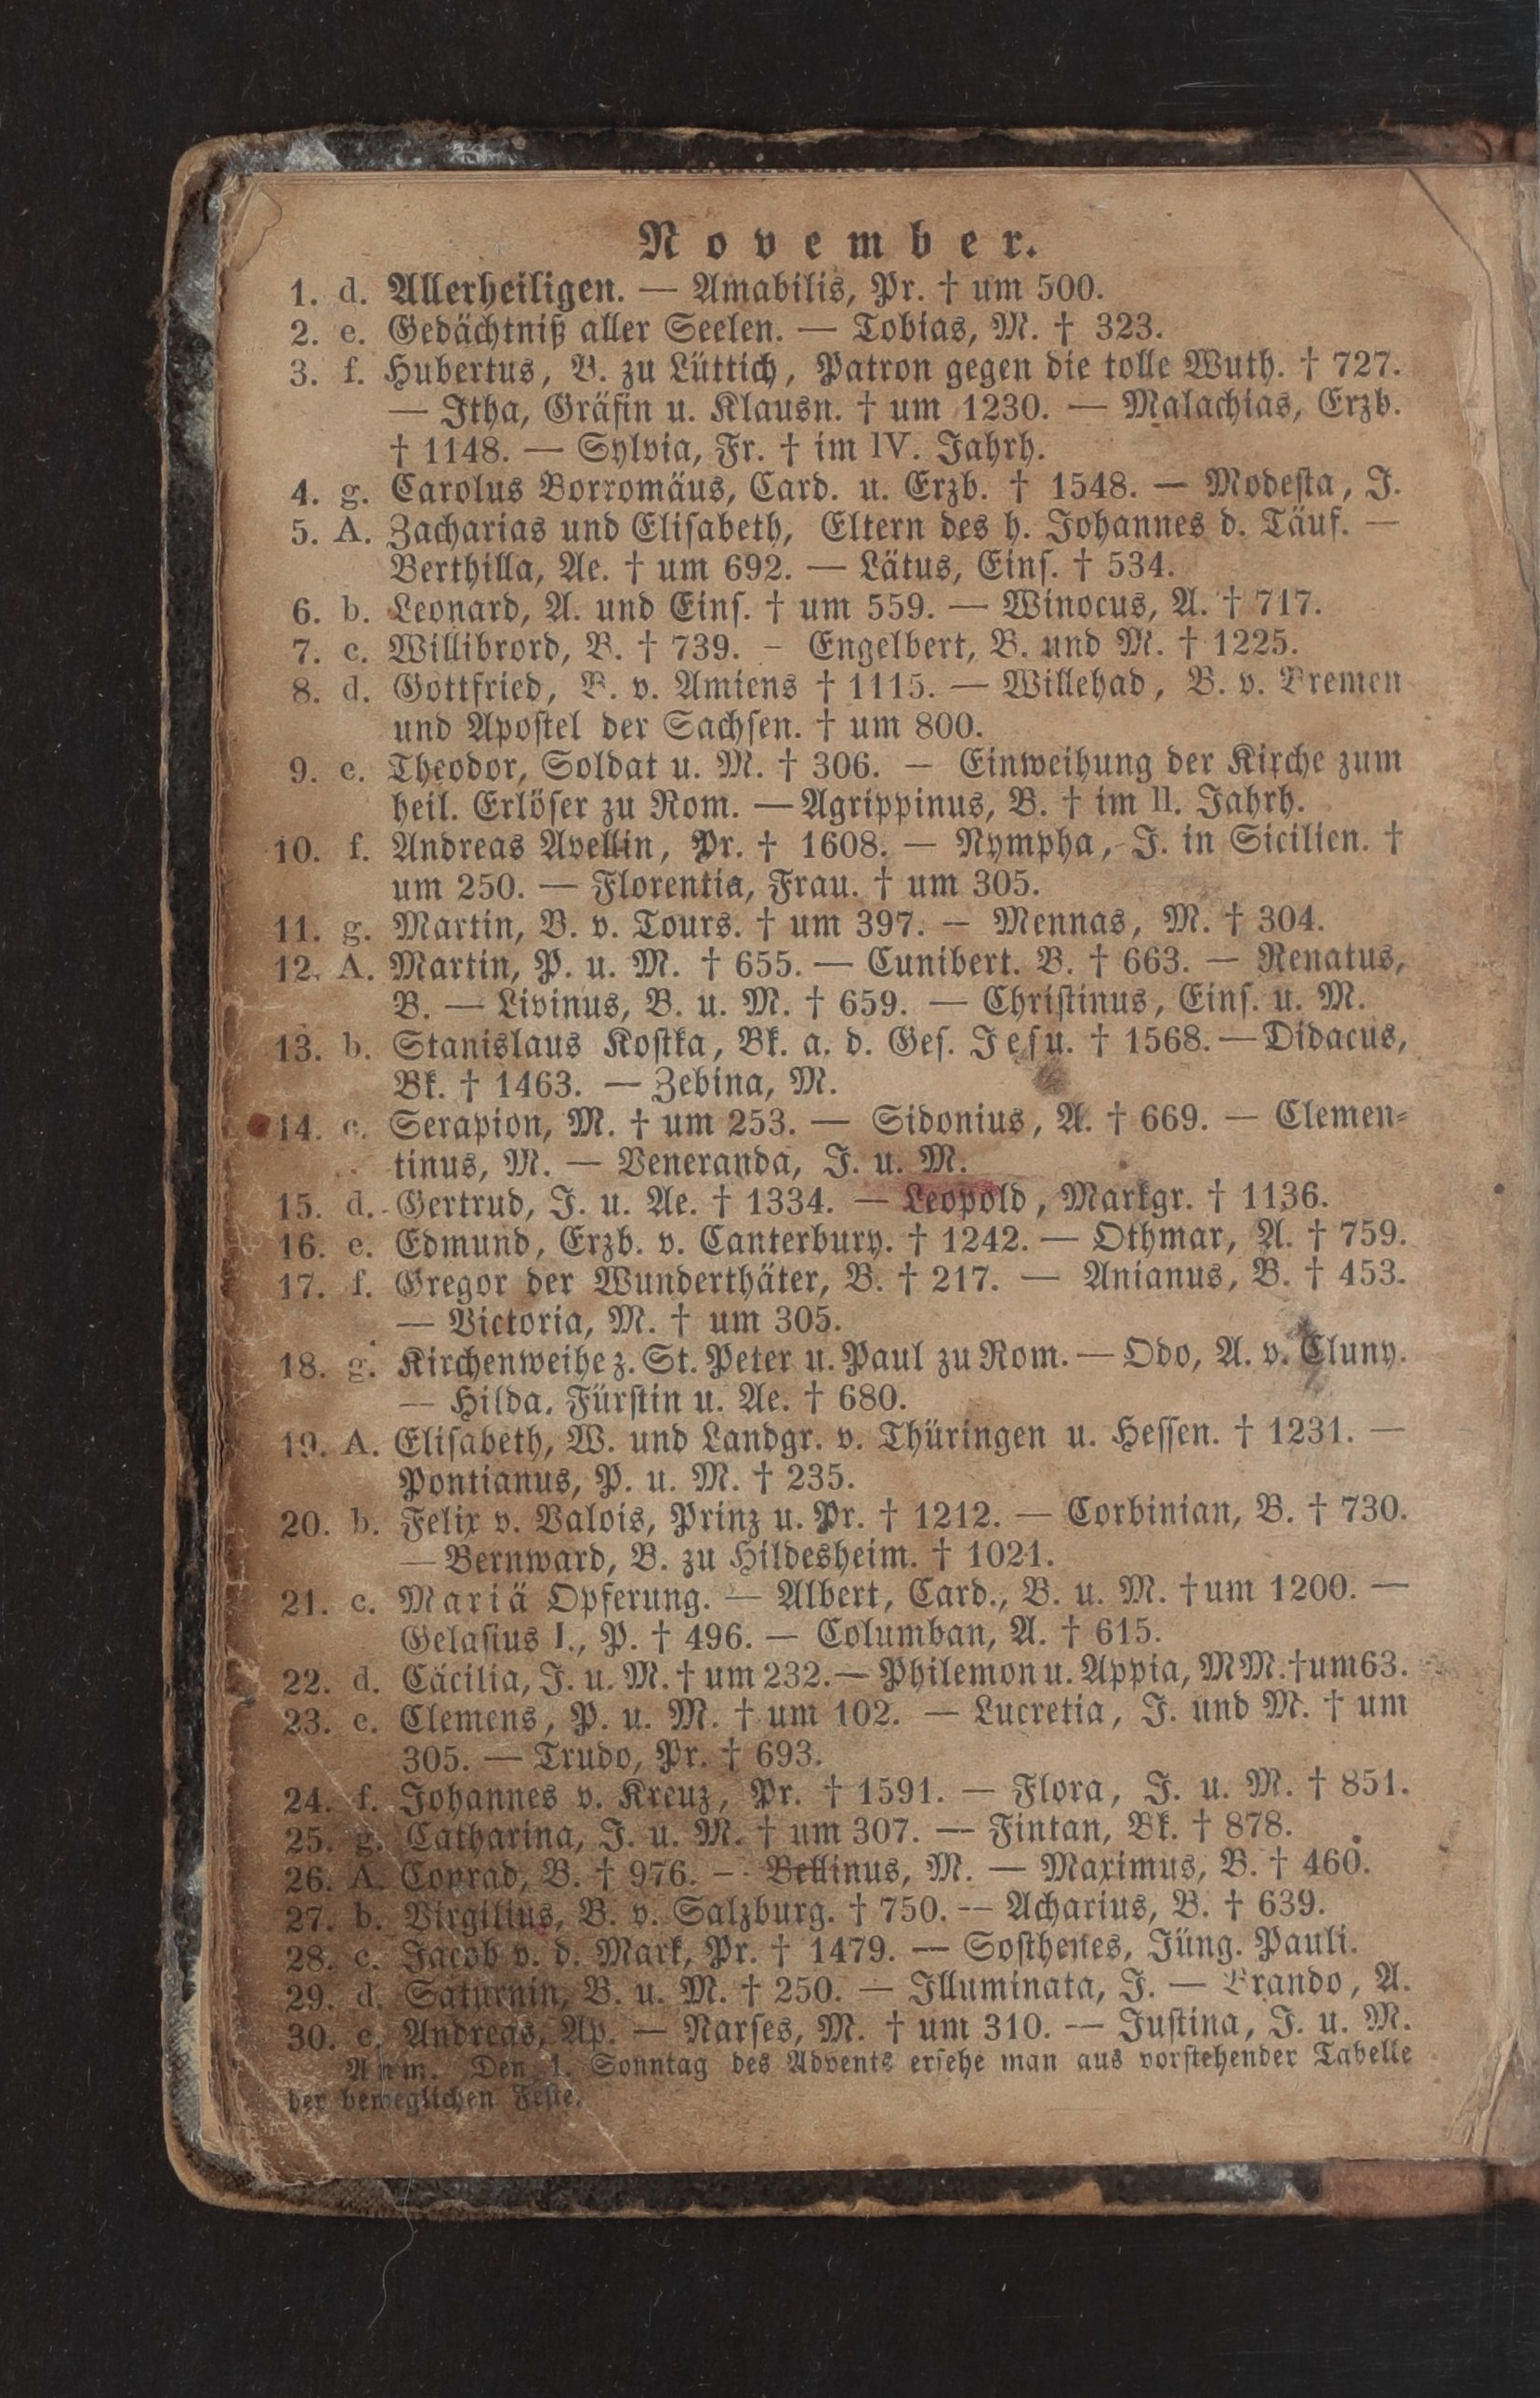 November.
1. d. Allerheiligen. — Amabilis, Pr. † um 500.
2. e. Gedächtniß aller Seelen. — Tobias, M. † 323.
3. f. Hubertus, B. zu Lüttich, Patron gegen die tolle Wuth. † 727.
— Itha, Gräfin u. Klausn. † um 1230. — Malachias, Erzb.
† 1148. — Sylvia, Fr. † im IV. Jahrh.
4. g. Carolus Borromäus, Card. u. Erzb. † 1548. — Modesta, J.
5. A. Zacharias und Elisabeth, Eltern des h. Johannes d. Täuf. —
Berthilla, Ae. † um 692. — Lätus, Eins. † 534.
6. b. Leonard, A. und Eins. † um 559. — Winocus, A. † 717.
7. c. Willibrord, B. † 739. – Engelbert, B. und M. † 1225.
8. d. Gottfried, B. v. Amiens † 1115. — Willehad, B. v. Bremen
und Apostel der Sachsen. † um 800.
9. e. Theodor, Soldat u. M. † 306. — Einweihung der Kirche zum
heil. Erlöser zu Rom. — Agrippinus, B. † im II. Jahrh.
10. f. Andreas Avellin, Pr. † 1608. — Nympha, J. in Sicilien. †
um 250. — Florentia, Frau. † um 305.
11. g. Martin, B. v. Tours. † um 397. — Mennas, M. † 304.
12. A. Martin, P. u. M. † 655. — Cunibert. B. † 663. — Renatus,
B. — Livinus, B. u. M. † 659. — Christinus, Eins. u. M.
13. b. Stanislaus Kostka, Bk. a. d. Ges. Jesu. † 1568. — Didacus,
Bk. † 1463. — Zebina, M.
14. c. Serapion, M. † um 253. — Sidonius, A. † 669. — Clemen-
tinus, M. — Veneranda, J. u. M.
15. d. Gertrud, J. u. Ae. † 1334. — Leopold, Markgr. † 1136.
16. e. Edmund, Erzb. v. Canterbury. † 1242. — Othmar, A. † 759.
17. f. Gregor der Wunderthäter, B. † 217. — Anianus, B. † 453.
— Victoria, M. † um 305.
18. g. Kirchenweihe z. St. Peter u. Paul zu Rom. — Odo, A. v. Cluny.
— Hilda, Fürstin u. Ae. † 680.
19. A. Elisabeth, W. und Landgr. v. Thüringen u. Hessen. † 1231. —
Pontianus, P. u. M. † 235.
20. b. Felix v. Valois, Prinz u. Pr. † 1212. — Corbinian, B. † 730.
— Bernward, B. zu Hildesheim. † 1021.
21. c. Mariä Opferung. — Albert, Card., B. u. M. † um 1200. —
Gelasius I., P. † 496. — Columban, A. † 615.
22. d. Cäcilia, J. u. M. † um 232. — Philemon u. Appia, MM. † um 63.
23. e. Clemens, P. u. M. † um 102. — Lucretia, J. und M. † um
305. — Trudo, Pr. † 693.
24. f. Johannes v. Kreuz, Pr. † 1591. — Flora, J. u. M. † 851.
25. g. Catharina, J. u. M. † um 307. — Fintan, Bk. † 878.
26. A. Conrad, B. † 976. — Bellinus, M. — Maximus, B. † 460.
27. b. Virgilius, B. v. Salzburg. † 750. — Acharius, B. † 639.
28. c. Jacob v. d. Mark, Pr. † 1479. — Sosthenes, Jüng. Pauli.
29. d. Saturnin, B. u. M. † 250. — Illuminata, J. — Brando, A.
30. e. Andreas, Ap. — Narses, M. † um 310. — Justina, J. u. M.
Anm. Den 1. Sonntag des Advents ersehe man aus vorstehender Tabelle
der beweglichen Feste.